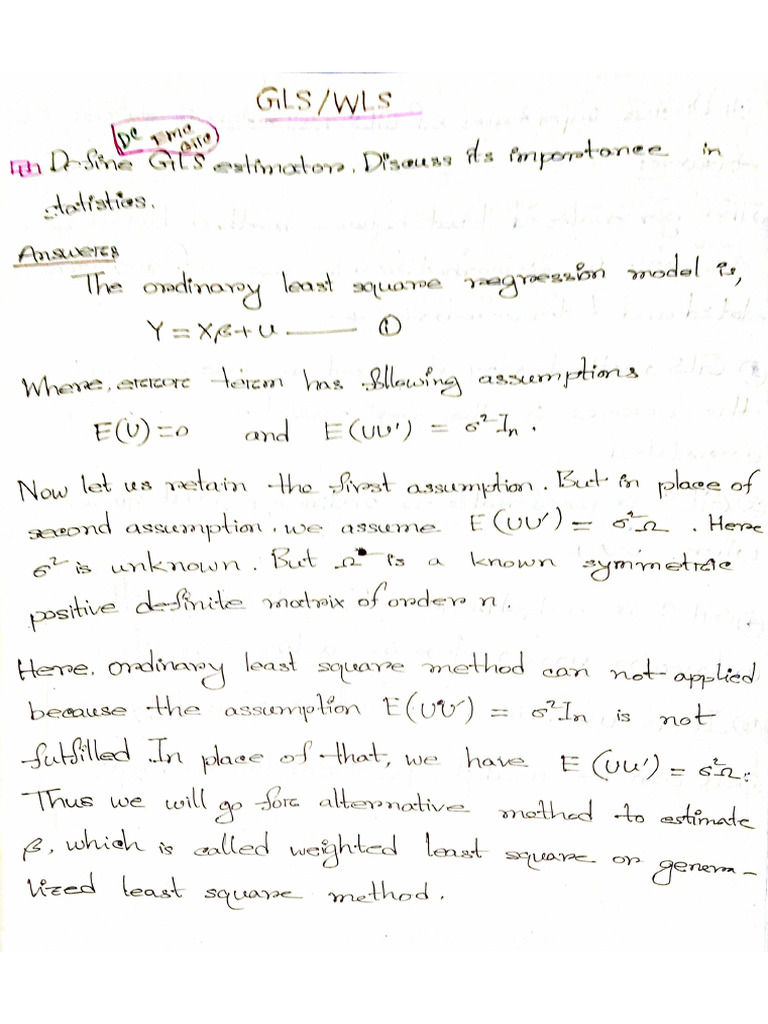 GLS/WLS
De
Define GLS estimators. Discuss its importance in
statistics.
Answers
The ordinary least square regression model is,
Y = Xβ + U ——— ①
Where, error term has following assumptions
E(U) = 0 and E(UU') = σ²Iₙ.
Now let us retain the first assumption. But in place of
second assumption, we assume E(UU') = σ²Ω. Here
σ² is unknown. But Ω is a known symmetric
positive definite matrix of order n.
Here, ordinary least square method can not applied
because the assumption E(UU') = σ²Iₙ is not
fulfilled. In place of that, we have E(UU') = σ²Ω.
Thus we will go for alternative method to estimate
β, which is called weighted least square or genera-
lized least square method.